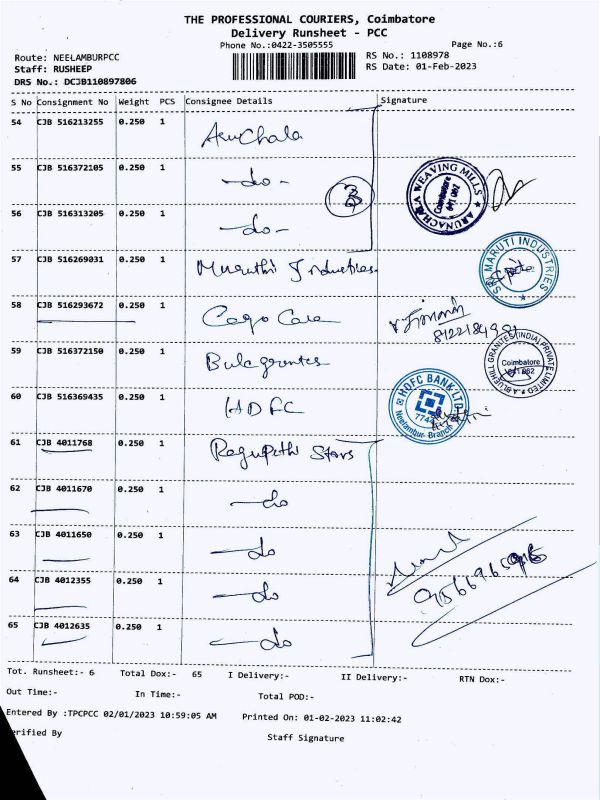 THE PROFESSIONAL COURIERS, Coimbatore
Delivery Runsheet - PCC
Phone No.:0422-3505555
Page No.:6
Route: NEELAMBURPCC
Staff: RUSHEEP
DRS No.: DCJB110897806
RS No.: 1108978
RS Date: 01-Feb-2023
S No Consignment No Weight PCS Consignee Details Signature
54 CJB 516213255 0.250 1 Arunchala
55 CJB 516372105 0.250 1 -do-
3
ARUNACHALA WEAVING MILLS
Coimbatore
641 062
56 CJB 516313205 0.250 1 -do-
57 CJB 516269031 0.250 1 Maruthi Industries
SRI MARUTI INDUSTRIES
58 CJB 516293672 0.250 1 Cago Care
59 CJB 516372150 0.250 1 Bulegranites
BLUEHILL GRANITES (INDIA) PRIVATE LIMITED
Coimbatore
60 CJB 516369435 0.250 1 HDFC
HDFC BANK LTD
Neelambur Branch
61 CJB 4011768 0.250 1 Ragupathi Stars
62 CJB 4011670 0.250 1 -do
63 CJB 4011650 0.250 1 -do
64 CJB 4012355 0.250 1 -do
65 CJB 4012635 0.250 1 -do
Tot. Runsheet:- 6 Total Dox:- 65 I Delivery:- II Delivery:- RTN Dox:-
Out Time:- In Time:- Total POD:-
Entered By :TPCPCC 02/01/2023 10:59:05 AM Printed On: 01-02-2023 11:02:42
erified By Staff Signature